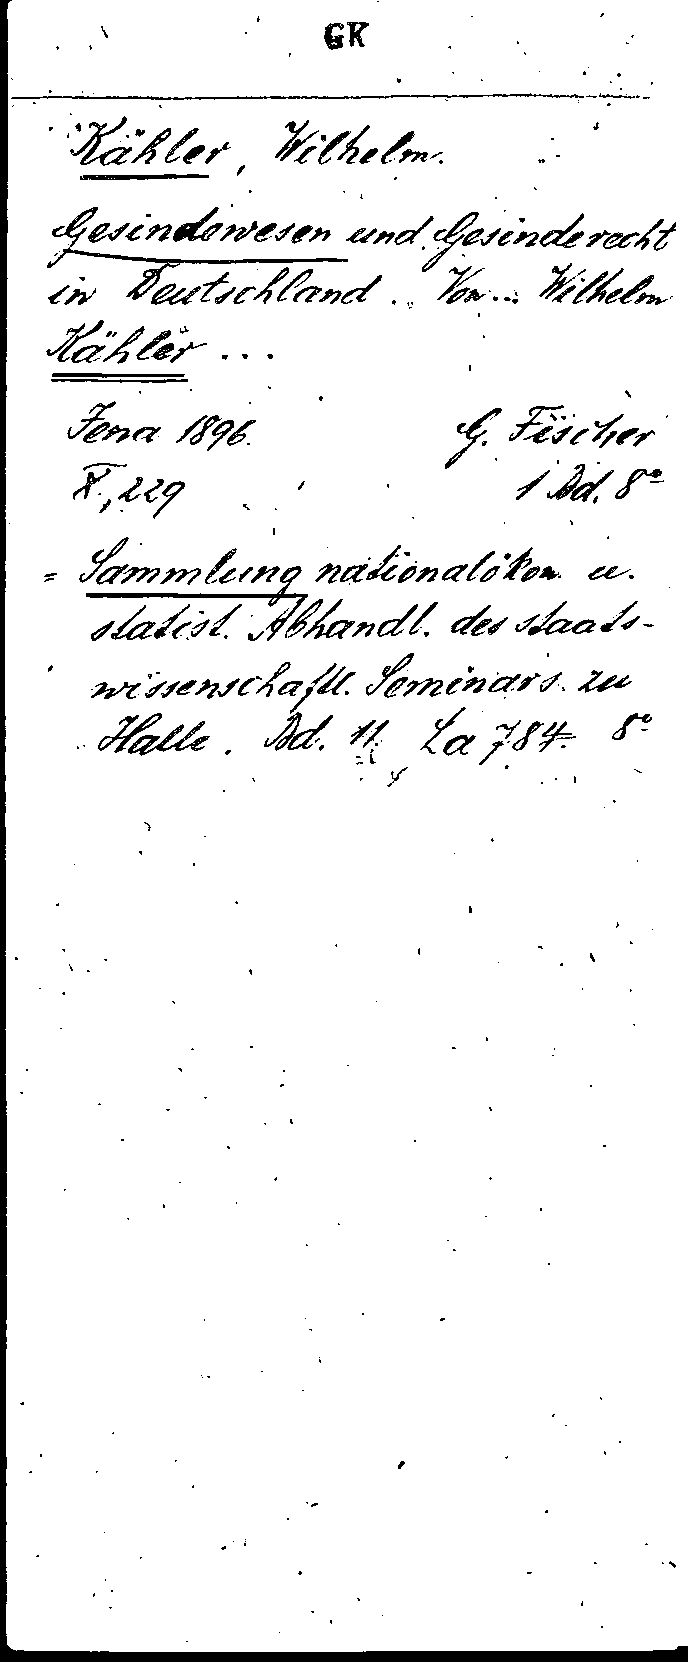 GK
Kähler, Wilhelm.
Gesindewesen und Gesinderecht
in Deutschland. Von... Wilhelm
Kähler ...
Jena 1896. G. Fischer
X, 229 1 Bd. 8°
= Sammlung nationalökon. u.
statist. Abhandl. des staats-
wissenschaftl. Seminars zu
Halle. Bd. 11. La 784. 8°